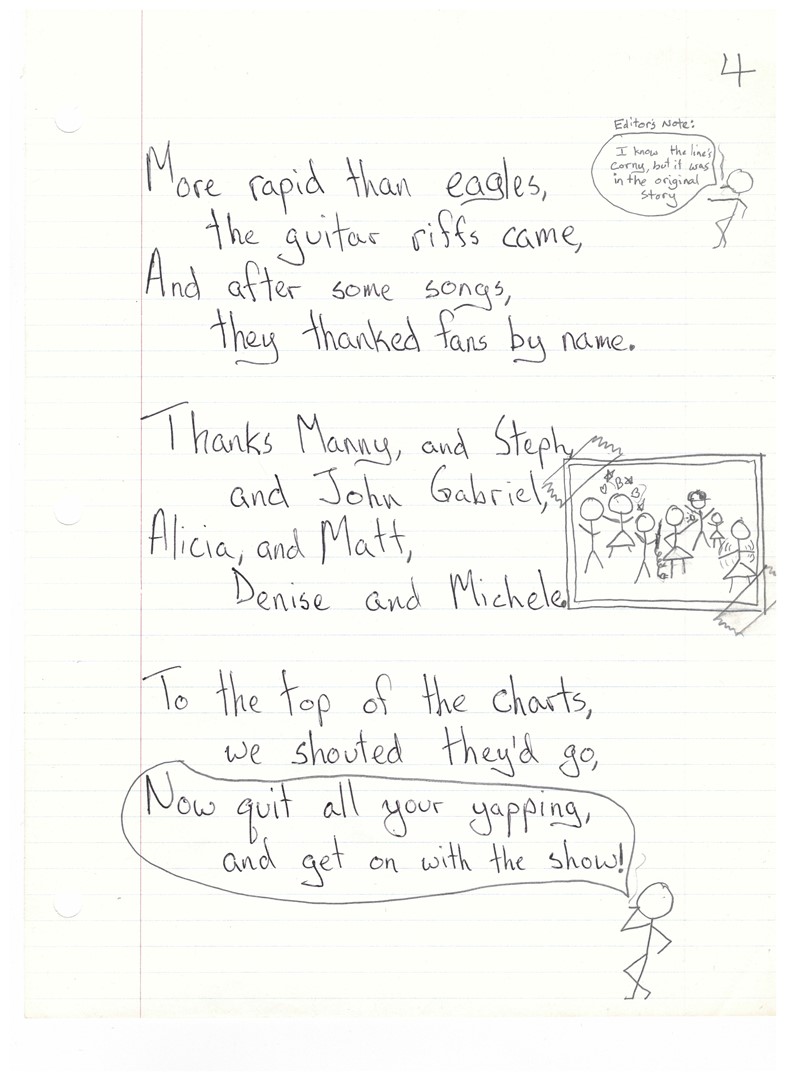 4
Editor's Note:
I know the line's
corny, but it was
in the original
story
More rapid than eagles,
the guitar riffs came,
And after some songs,
they thanked fans by name.
Thanks Manny, and Steph,
and John Gabriel,
Alicia, and Matt,
Denise and Michele.
To the top of the charts,
we shouted they'd go,
Now quit all your yapping,
and get on with the show!